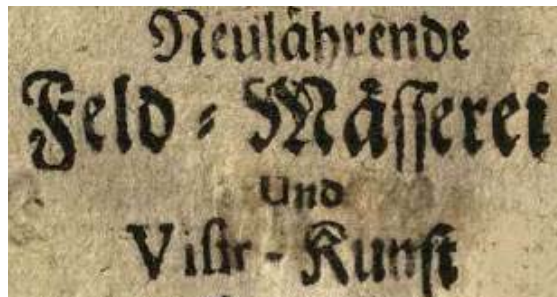 Neulåhrende
Feld = Måſſerei
Und
Viſir - Kunſt